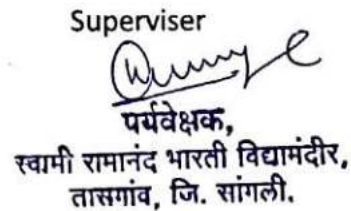 Superviser
पर्यवेक्षक,
स्वामी रामानंद भारती विद्यामंदीर,
तासगांव, जि. सांगली.